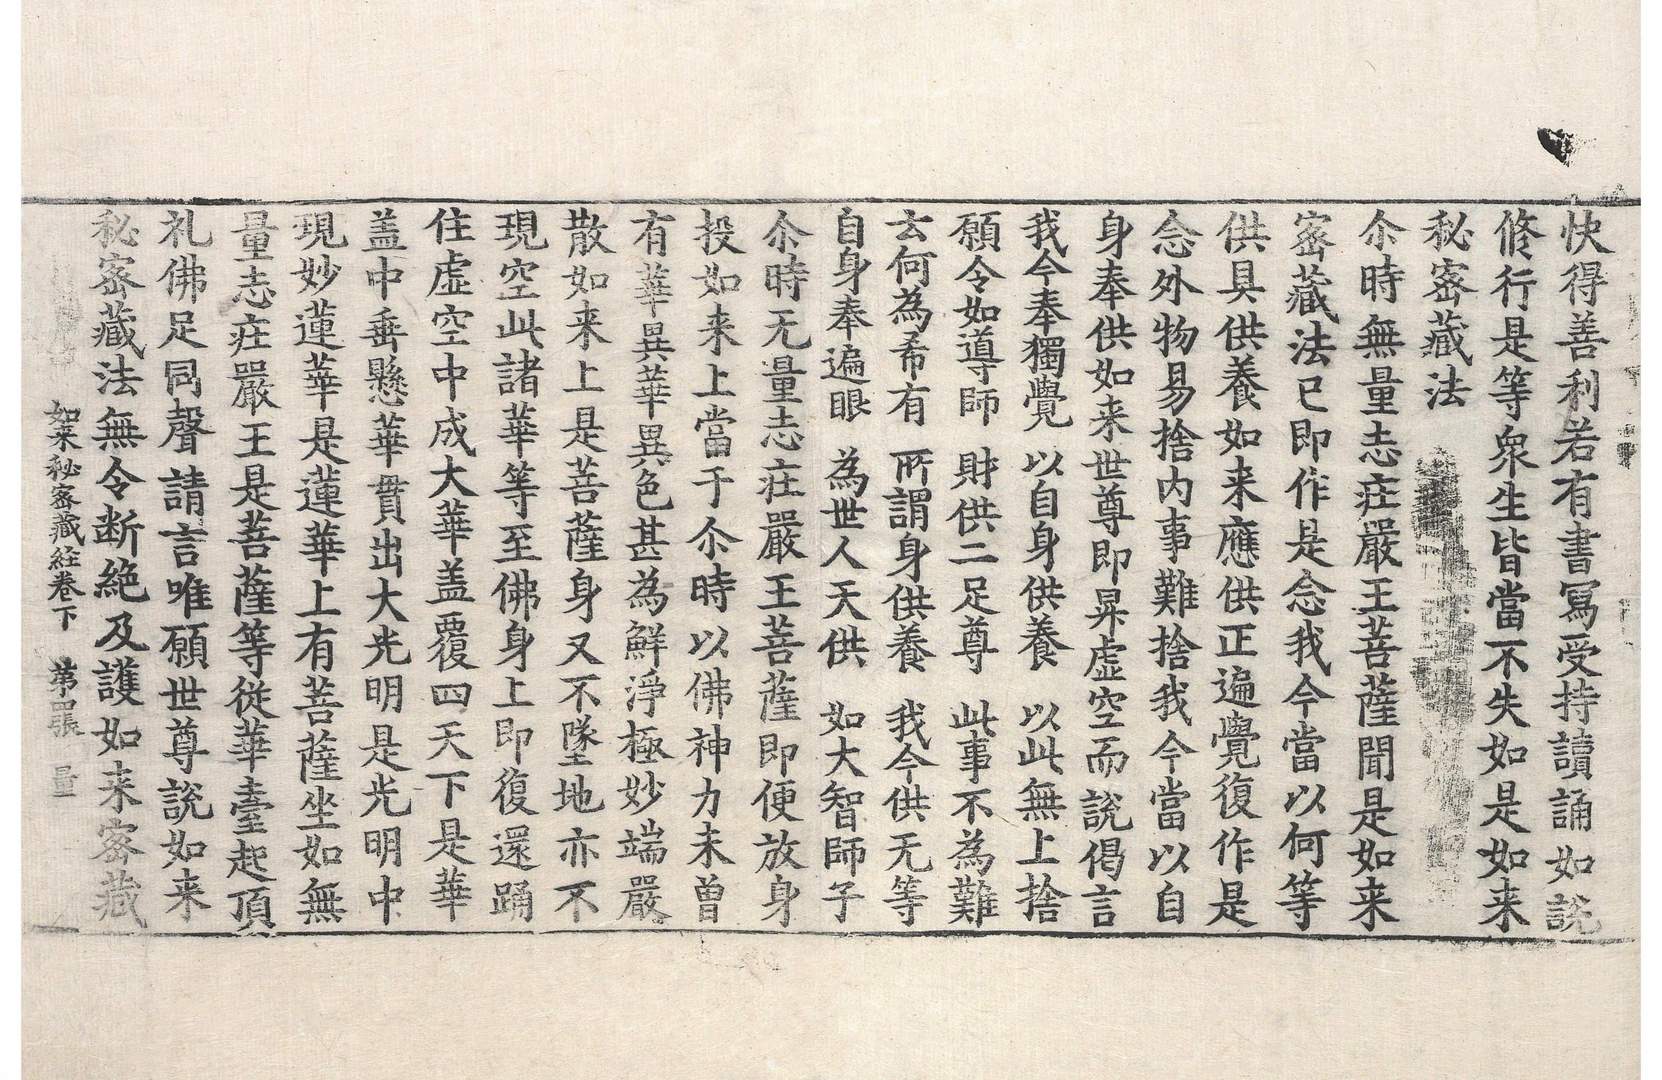 快得善利若有書寫受持讀誦如說
修行是等衆生皆當不失如是如来
秘密藏法
尒時無量志庄嚴王菩薩聞是如来
密藏法已即作是念我今當以何等
供具供養如来應供正遍覺復作是
念外物易捨內事難捨我今當以自
身奉供如来世尊即昇虛空而說偈言
我今奉獨覺　以自身供養　以此無上捨
願令如導師　財供二足尊　此事不為難
云何為希有　所謂身供養　我今供无等
自身奉遍眼　為世人天供　如大智師子
尒時无量志庄嚴王菩薩即便放身
投如来上當于尒時以佛神力未曾
有華異華異色甚為鮮淨極妙端嚴
散如来上是菩薩身又不墜地亦不
現空此諸華等至佛身上即復還踊
住虛空中成大華盖覆四天下是華
盖中垂懸華貫出大光明是光明中
現妙蓮華是蓮華上有菩薩坐如無
量志庄嚴王是菩薩等從華臺起頂
礼佛足同聲請言唯願世尊說如来
秘密藏法無令断絶及護如来密藏
如来秘密藏経卷下　第四張　量